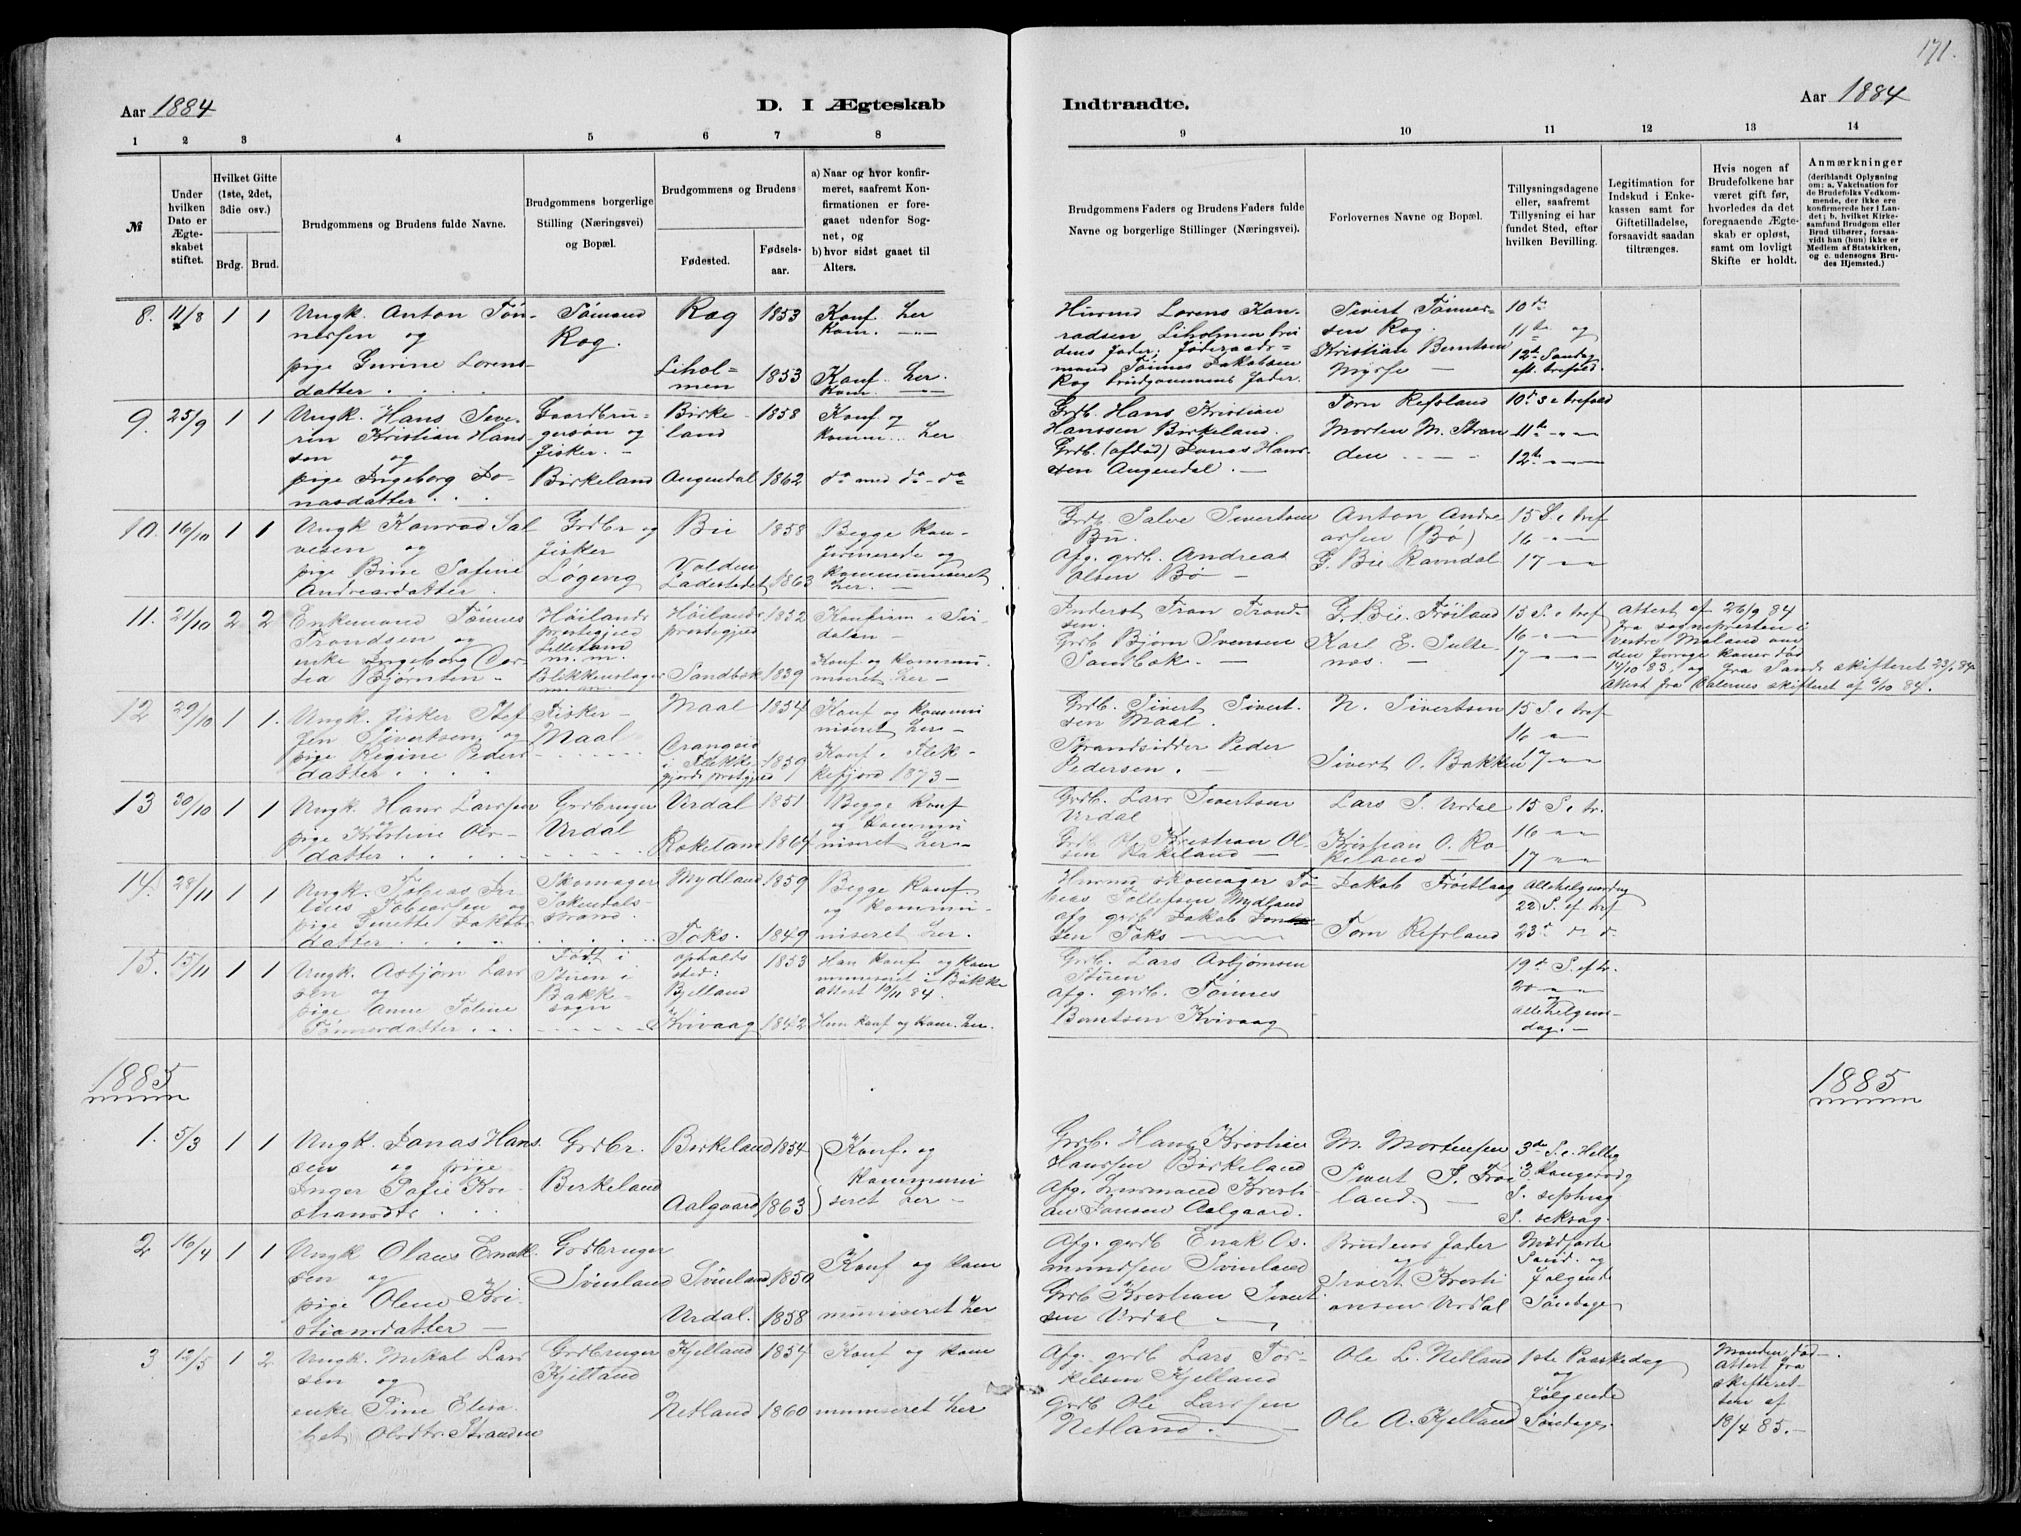 171.
Aar 1884
D. I Ægteskab
Indtraadte.
Aar 1884
1 2 3 4 5 6 7 8
9 10 11 12 13 14
№
Under hvilken Dato er Ægteskabet stiftet.
Hvilket Gifte (1ste, 2det, 3die osv.)
Brdg. Brud.
Brudgommens og Brudens fulde Navne.
Brudgommens borgerlige Stilling (Næringsvei) og Bopæl.
Brudgommens og Brudens
Fødested.
Fødselsaar.
a) Naar og hvor konfirmeret, saafremt Konfirmationen er foregaaet udenfor Sognet, og
b) hvor sidst gaaet til Alters.
Brudgommens Faders og Brudens Faders fulde Navne og borgerlige Stillinger (Næringsvei).
Forlovernes Navne og Bopæl.
Tillysningsdagene eller, saafremt Tillysning ei har fundet Sted, efter hvilken Bevilling.
Legitimation for Indskud i Enkekassen samt for Giftetilladelse, forsaavidt saadan tiltrænges.
Hvis nogen af Brudefolkene har været gift før, hvorledes da det foregaaende Ægteskab er opløst, samt om lovligt Skifte er holdt.
Anmærkninger (deriblandt Oplysning om: a. Vakcination for de Brudefolks Vedkommende, der ikke ere konfirmerede her i Landet; b. hvilket Kirkesamfund Brudgom eller Brud tilhører, forsaavidt han (hun) ikke er Medlem af Statskirken, og c. udensogns Brudes Hjemsted.)
8. 11/8 1 1
Ungk. Anton Tønnessen og
pige Gurine Lorensdatter
Tømand Rog.
Rog 1853 Konf. her kom. —
Liholmen 1853 Konf. her. kom. —
Husmd Lorens Konradsen Liholmen brudens fader; føderaadsmand Tønnes Jakobsen Rog brudgommens fader.
Sivert Tønnessen Rog. Kristian Berntsen Myrse —
10de 11te og 12te Søndag eft. trefold.
9. 25/9 1 1
Ungk. Hans Severin Kristian Hanssøn og
pige Ingeborg Jonasdatter
Gaardbrugersøn og fisker. — Birkeland
Birkeland 1858 Konf. og komm... her
Augendal 1862 do med do - do
Grdb. Hans Kristian Hanssen Birkeland.
Grdb. (afdød) Jonas Hanssen Augendal. —
Torn Refsland
Morten M. Stranden
10. S. e trefold 11te — 12te —
10. 16/10 1 1
Ungk. Konrad Salvesen og
pige Bine Sofine Andreasdatter
Grdbr og fisker Løgeng
Bu 1858
Valden Ladestedet 1863
Begge konfirmerede og kommuniceret her. —
Grdb. Salve Sivertsen Bu.
Afg. grdb. Andreas Olsen Bø —
Anton Andreassen (Bø)
G. Bie Ramdal
15 S. e tref 16 — 17 —
11. 21/10 2 2
Enkemand Tønnes Trondsen og
enke Ingeborg Bjørnsen -
Høilands prestegjeld
Høilands prestegjeld 1852 Konfirm e Sirdalen —
Sandbok 1839 Konf og kommuniseret her —
Inderst Tron Trondsen.
Grdb Bjørn Svensen Sandbok. —
G. Bie. Frøiland
Karl E. Sultenæs. —
15 S. e tref 16 — 17 —
Attest af 26/9 84 fra sognepresten i vestre Moland om den forrige kones død 14/10 83. og fra Sands skifteret 23/8 84 Attest fra Dalernes skifteret af 6/10 84.
12 29/10 1 1.
Ungk. fisker Steffen Sivertsen og
pige Regine Pedersdatter
Fisker - Maal
Maal 1854 Konf og kommuniseret her —
i Flekkefjords prestegjeld 1859 Konf. i Flekkefjord 1873 —
Grdb. Sivert Sivertsen Maal.
Strandsidder Peder Pedersen. —
N. Sivertsen
Sivert O. Bakken
15 S. e tref 16 — 17 —
13 30/10 1 1
Ungk. Hans Larssen og
pige Kristine Olsdatter
Grdbruger Urdal
Urdal 1851
Røkeland 1864
Begge konf og kommuniseret her —
Grdb. Lars Sivertsen Urdal
Grdb Ole Kristian Olsen Røkeland —
Lars S. Urdal
Kristian O. Rokeland —
15 S. e tr. 16 — 17 —
14. 28/11 1 1
Ungk. Tobias Julius Tobiassen og
pige Jakobsdatter
Skomager Sokendalsstrand.
Mydland 1859
Foks. 1849
Begge konf. og kommuniseret her.
Husmd skomager Tobias Tollefsen Mydland
afg grdb Jakob Jonssen Foks —
Jakob Frøitlaag
Torn Refsland
Allehelgensdag 22 S. ef tref 23d
15. 15/11 1 1
Ungk. Asbjørn Larssen og
pige Anne Toline Tønnesdatter
Født i Stuen i Bakke sogn
opholdssted: Bjelland 1853 Han konf og kommuniseret i Bakke attest 10/11 84.
Kvivaag 1842 Hun konf og kom. her.
Grdb. Lars Asbjørnsen Stuen
afg. grdb. Tønnes Berntsen Kvivaag
19d S. ef tr. 20 — og Allehelgensdag. —
1885
1885
1. 5/3 1 1
Ungk. Jonas Hanssen og pige
Inger Sofie Kristiansdtr
Grdbr. Birkeland
Birkeland 1854
Aalgaard 1863
Konf. og kommuniseret her —
Grdb. Hans Kristian Hanssen Birkeland
Afg. Husmand Kristian Jonsen Aalgaard.
M. Mortensen
Sivert S. Frøiland. —
3de S. e. Hellig 3 Kongersdag S. septuag S. seksag.
2 16/4 1 1
Ungk Olaus Enoksen og
pige Olene Kristiansdatter —
Grdbruger Svinland
Svinland 1850
Urdal. 1858
Konf og kommuniseret her
Afg. grdb Enok Osmundsen Svinland
Grdb Kristian Sivertsen Urdal —
Brudens fader og
Sivert Kristiansen Urdal
Midfaste Sønd. og følgende Søndage
3 12/5 1 2
Ungk. Mikal Larssen og
enke Tine Elisabet Olsdtr. Stranden
Grdbruger Kjelland
Kjelland 1854
Netland 1860
Konf og kommuniseret her
Afg. grdb Lars Torkelsen Kjelland
Grdb Ole Larssen Netland. —
Ole L. Netland
Ole A. Kjelland
1ste Paaskedag og følgende Søndage.
Manden død —. Attest fra skifteretten af 18/4 85. —